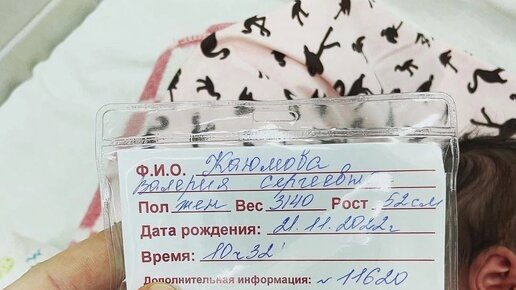 Ф.И.О. Каюмова
Валерия Сергеевна
Пол жен Вес 3140 Рост 52см
Дата рождения: 21.11.2022г
Время: 10ч32'
Дополнительная информация: №11620